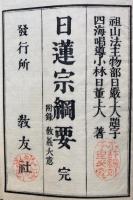 祖山法主物部日嚴大題子
四海唱導小林日董上人著
日蓮宗綱要 完
附錄 敎義大意
發行所 敎友社